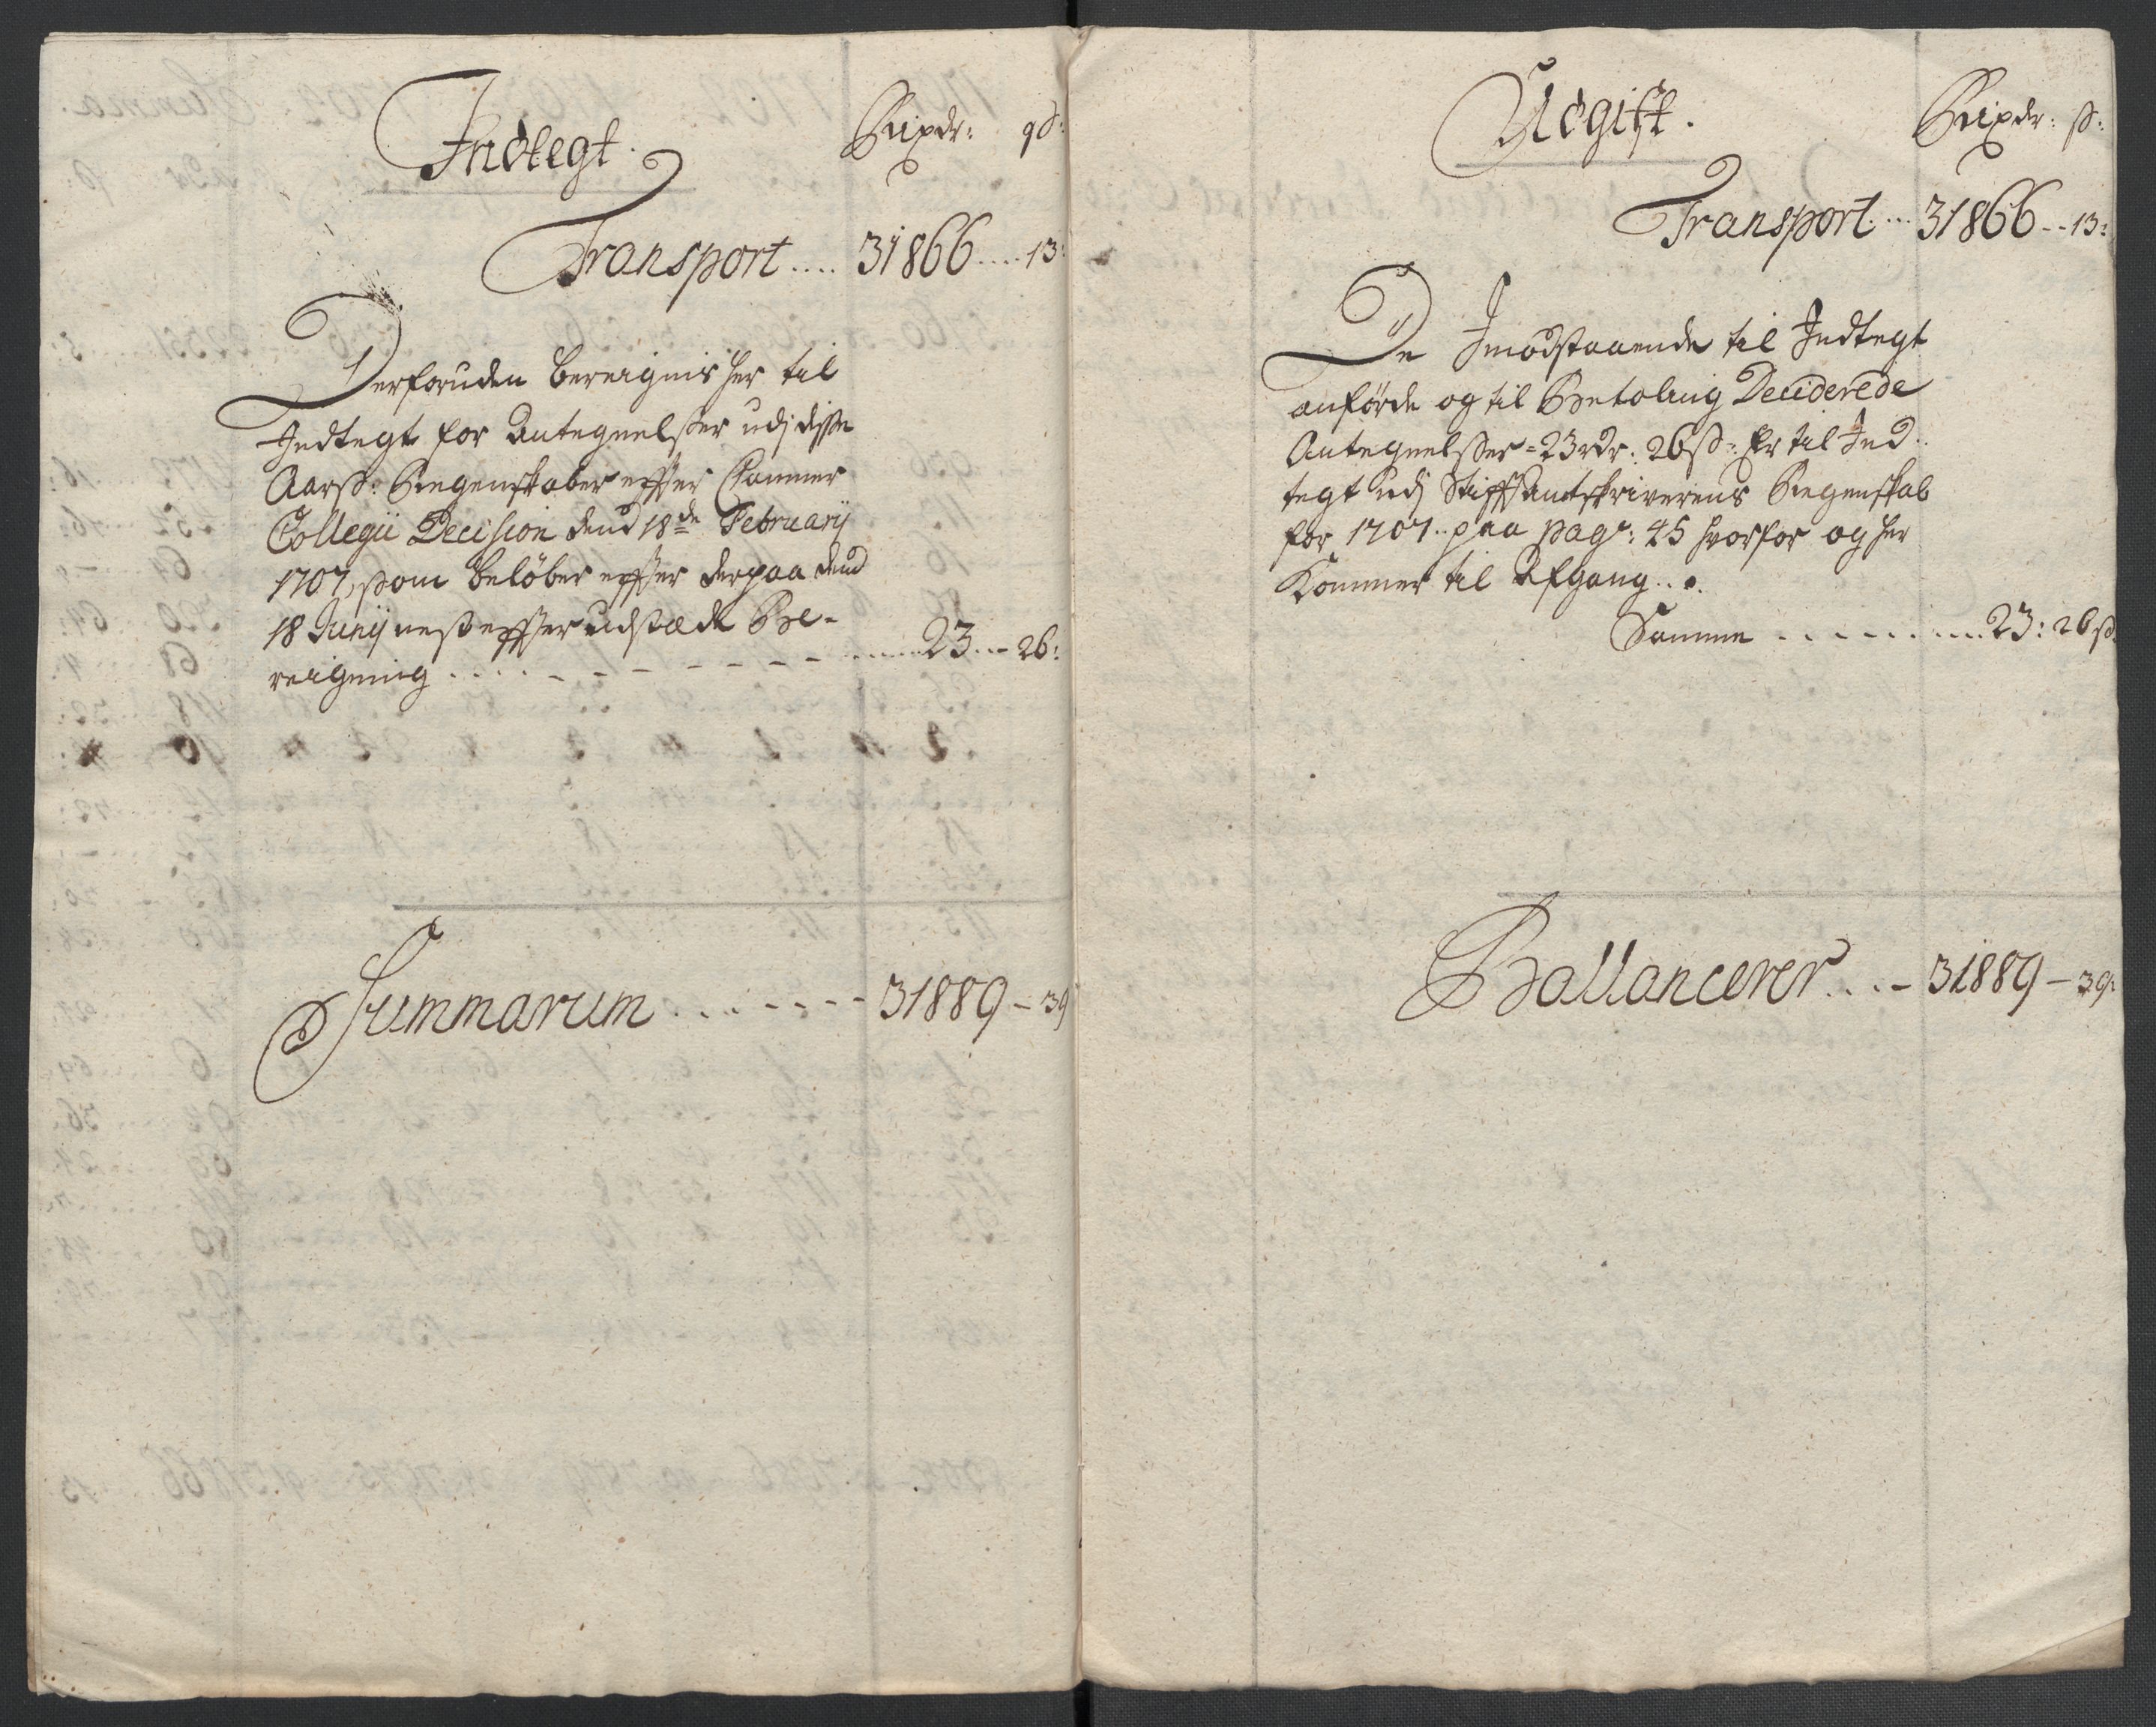 Indtegt.
Rixdr: ß:
Transport .... 31866 .... 13:
Derforuden bereignis her til
Indtegt for Antegnelßer udj disse
Aarß: Regenskaber effter Cammer
Collegii Decision dend 18de Februarij
1707, som beløber effter derpaa dend
18 Junij nest effter udstæde Be-
reigning . . . . - - - - - - 23 - 26:
Summarum . . . - - - - 31889 - 39
Udgift.
Rixdr: ß:
Transport ... 31866 - - 13:
De Imodstaaende til Indtegt
anførde og til Betaling Deciderede
Antegnelßer = 23 rdr: 26 ß: Er til Ind-
tegt udj Stifftamtskriverens Regenskab
for 1707 .. paa pag: 45 hvorfor og her
Kommer til Afgang . .
Samme . . - - - - . . . . 23: 26 ß:
Ballancerer . . . - 31889 - 39: